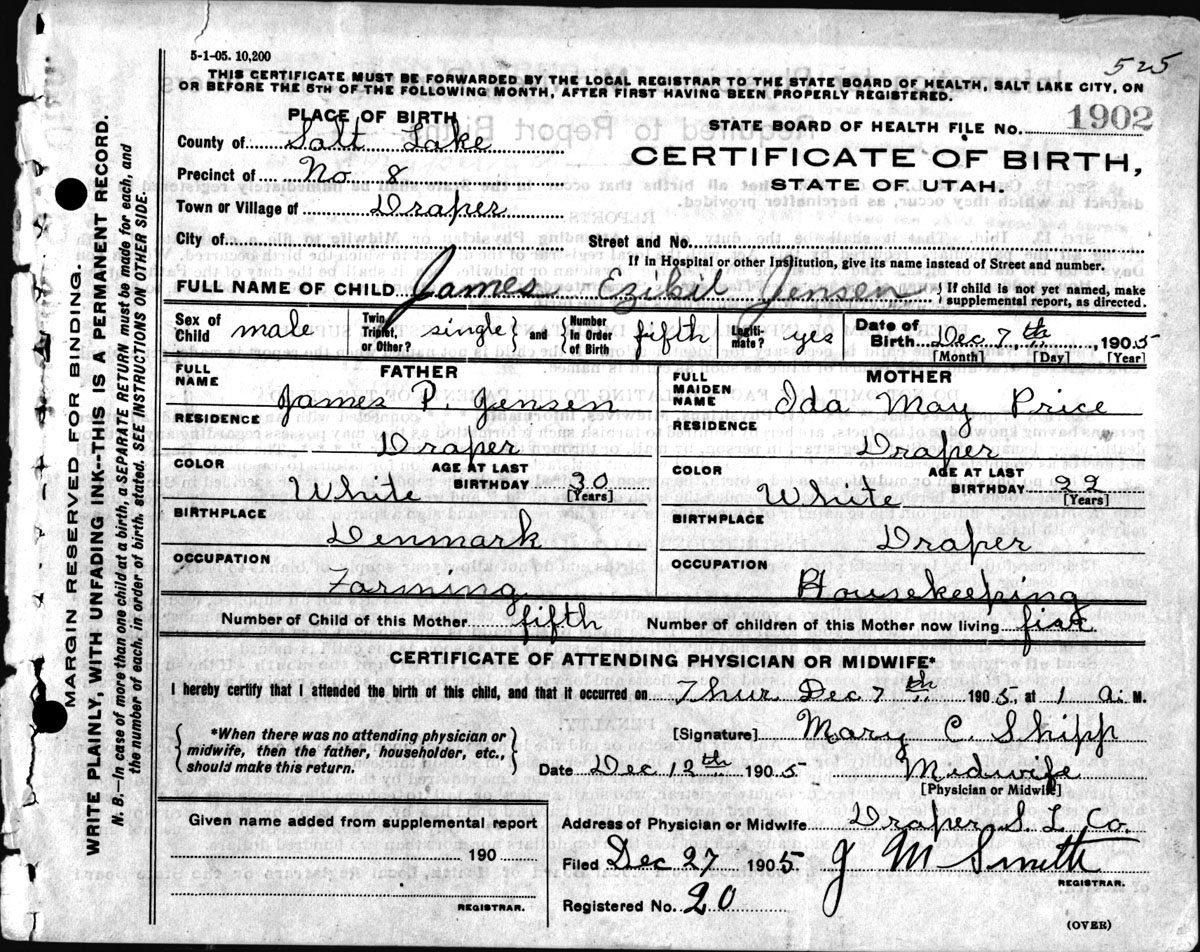 525
5-1-05. 10,200
THIS CERTIFICATE MUST BE FORWARDED BY THE LOCAL REGISTRAR TO THE STATE BOARD OF HEALTH, SALT LAKE CITY, ON
OR BEFORE THE 5TH OF THE FOLLOWING MONTH, AFTER FIRST HAVING BEEN PROPERLY REGISTERED.
PLACE OF BIRTH
STATE BOARD OF HEALTH FILE NO. 1902
County of Salt Lake
CERTIFICATE OF BIRTH,
Precinct of No 8
STATE OF UTAH.
Town or Village of Draper
City of
Street and No.
If in Hospital or other Institution, give its name instead of Street and number.
FULL NAME OF CHILD James Ezikel Jensen { If child is not yet named, make supplemental report, as directed.
Sex of Child male Twin, Triplet, or Other? single } and { Number in Order of Birth fifth Legiti-mate? yes Date of Birth Dec 7th, 1905
[Month] [Day] [Year]
FATHER
MOTHER
FULL NAME James P. Jensen
FULL MAIDEN NAME Ida May Price
RESIDENCE Draper
RESIDENCE Draper
COLOR White AGE AT LAST BIRTHDAY 30 [Years]
COLOR White AGE AT LAST BIRTHDAY 22 [Years]
BIRTHPLACE Denmark
BIRTHPLACE Draper
OCCUPATION Farming
OCCUPATION Housekeeping
Number of Child of this Mother fifth Number of children of this Mother now living
CERTIFICATE OF ATTENDING PHYSICIAN OR MIDWIFE*
I hereby certify that I attended the birth of this child, and that it occurred on Thur Dec 7th 1905, at 1 a. M.
{ *When there was no attending physician or
midwife, then the father, householder, etc.,
should make this return. }
[Signature] Mary C. Shipp
Date Dec 12th 1905 Midwife
[Physician or Midwife]
Given name added from supplemental report
190
REGISTRAR.
Address of Physician or Midwife Draper S. L. Co.
Filed Dec 27 1905 J M Smith
REGISTRAR.
Registered No. 20
(OVER)
MARGIN RESERVED FOR BINDING.
WRITE PLAINLY, WITH UNFADING INK--THIS IS A PERMANENT RECORD.
N. B.--In case of more than one child at a birth, a SEPARATE RETURN must be made for each, and
the number of each, in order of birth, stated. SEE INSTRUCTIONS ON OTHER SIDE.